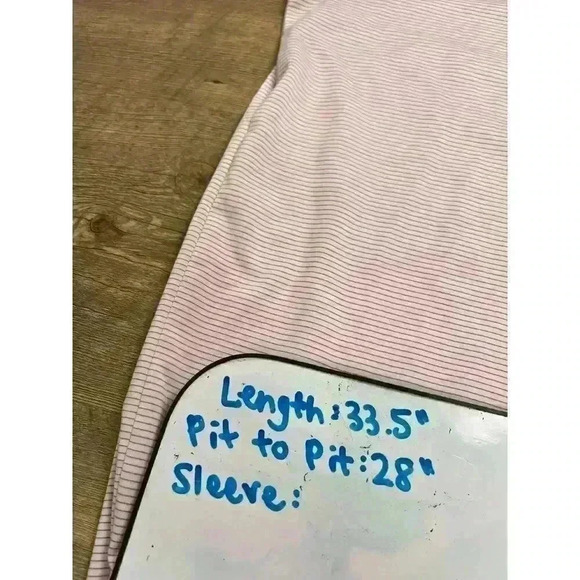 Length: 33.5"
Pit to Pit: 28"
Sleeve: